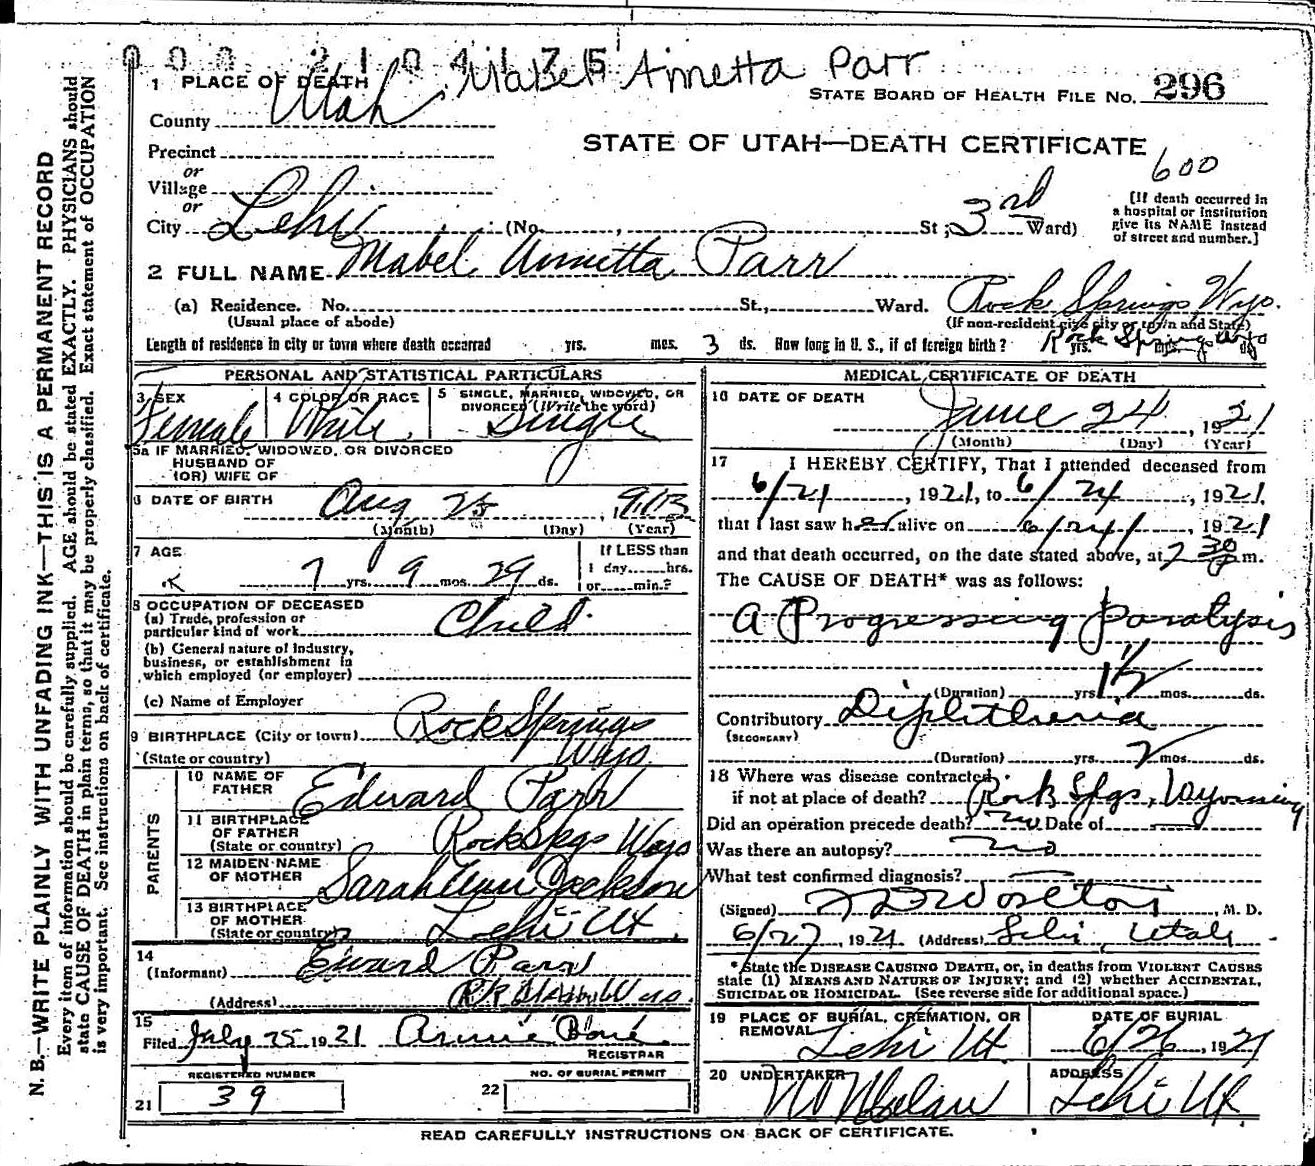 0 0 0 2 1 0 4 1 7 5
Mabel Annetta Parr
1 PLACE OF DEATH
STATE BOARD OF HEALTH FILE NO. 296
County Utah
STATE OF UTAH—DEATH CERTIFICATE
600
Precinct
or
Village
or
City Lehi (No. , St; 3rd Ward)
[If death occurred in
a hospital or institution
give its NAME instead
of street and number.]
2 FULL NAME Mabel Annetta Parr
(a) Residence. No. St., Ward. Rock Springs Wyo.
(Usual place of abode)
(If non-resident give city or town and State)
Length of residence in city or town where death occurred yrs. mos. 3 ds. How long in U. S., if of foreign birth? yrs. mos. ds.
Rock Springs Wyo
PERSONAL AND STATISTICAL PARTICULARS
3 SEX
Female
4 COLOR OR RACE
White
5 SINGLE, MARRIED, WIDOWED, OR
DIVORCED (Write the word)
Single
5a IF MARRIED, WIDOWED, OR DIVORCED
HUSBAND OF
(OR) WIFE OF
6 DATE OF BIRTH Aug 25, 1913
(Month) (Day) (Year)
7 AGE
7 yrs. 9 mos. 29 ds.
If LESS than
1 day......hrs.
or......min.?
8 OCCUPATION OF DECEASED
(a) Trade, profession or
particular kind of work Child
(b) General nature of industry,
business, or establishment in
which employed (or employer)
(c) Name of Employer
9 BIRTHPLACE (City or town) Rock Springs
(State or country) Wyo
PARENTS
10 NAME OF
FATHER Edward Parr
11 BIRTHPLACE
OF FATHER
(State or country) Rock Spgs Wyo
12 MAIDEN NAME
OF MOTHER Sarah Ann Jackson
13 BIRTHPLACE
OF MOTHER
(State or country) Lehi Ut
14
(Informant) Edward Parr
(Address) Wyo.
15
Filed July 25 1921 Annie
REGISTRAR
REGISTERED NUMBER
21 39
NO. OF BURIAL PERMIT
22
MEDICAL CERTIFICATE OF DEATH
16 DATE OF DEATH
June 24, 1921
(Month) (Day) (Year)
17 I HEREBY CERTIFY, That I attended deceased from
6/21, 1921, to 6/24, 1921,
that I last saw her alive on 6/24/, 1921
and that death occurred, on the date stated above, at 2 30 p.m.
The CAUSE OF DEATH* was as follows:
A Progressing Paralysis
(Duration) yrs. 1½ mos. ds.
Contributory Diphtheria
(SECONDARY)
(Duration) yrs. 2 mos. ds.
18 Where was disease contracted
if not at place of death? Rock Spgs, Wyoming
Did an operation precede death? no Date of
Was there an autopsy? no
What test confirmed diagnosis?
(Signed) Worlton, M. D.
6/27, 1921 (Address) Lehi, Utah
* State the DISEASE CAUSING DEATH, or, in deaths from VIOLENT CAUSES
state (1) MEANS AND NATURE OF INJURY; and (2) whether ACCIDENTAL,
SUICIDAL OR HOMICIDAL. (See reverse side for additional space.)
19 PLACE OF BURIAL, CREMATION, OR
REMOVAL Lehi Ut
DATE OF BURIAL
6/26, 1921
20 UNDERTAKER
ADDRESS
Lehi Ut
READ CAREFULLY INSTRUCTIONS ON BACK OF CERTIFICATE.
N. B.—WRITE PLAINLY WITH UNFADING INK—THIS IS A PERMANENT RECORD
Every item of information should be carefully supplied. AGE should be stated EXACTLY. PHYSICIANS should
state CAUSE OF DEATH in plain terms, so that it may be properly classified. Exact statement of OCCUPATION
is very important. See instructions on back of certificate.